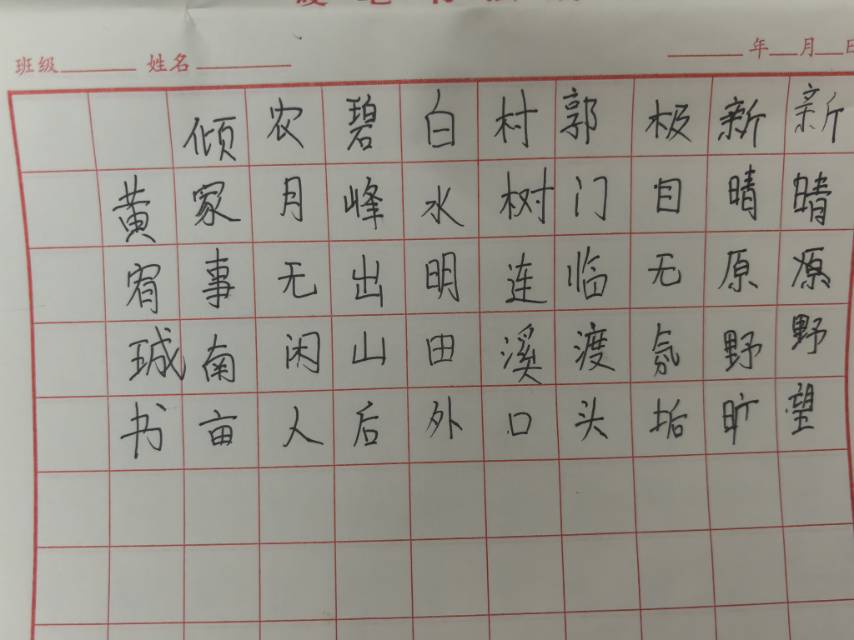 班级 姓名 年 月 日
新晴原野望
新晴原野旷
极目无氛垢
郭门临渡头
村树连溪口
白水明田外
碧峰出山后
农月无闲人
倾家事南亩
黄宥珹书